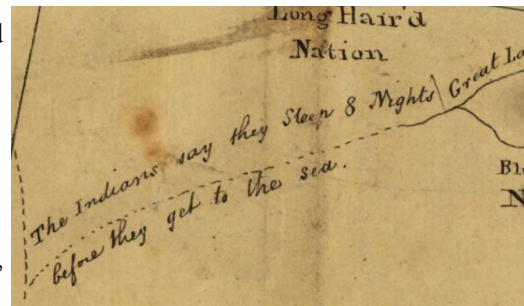 Long Hair'd
Nation
The Indians say they Sleep 8 Nights Great La
before they get to the sea.
Bl
N